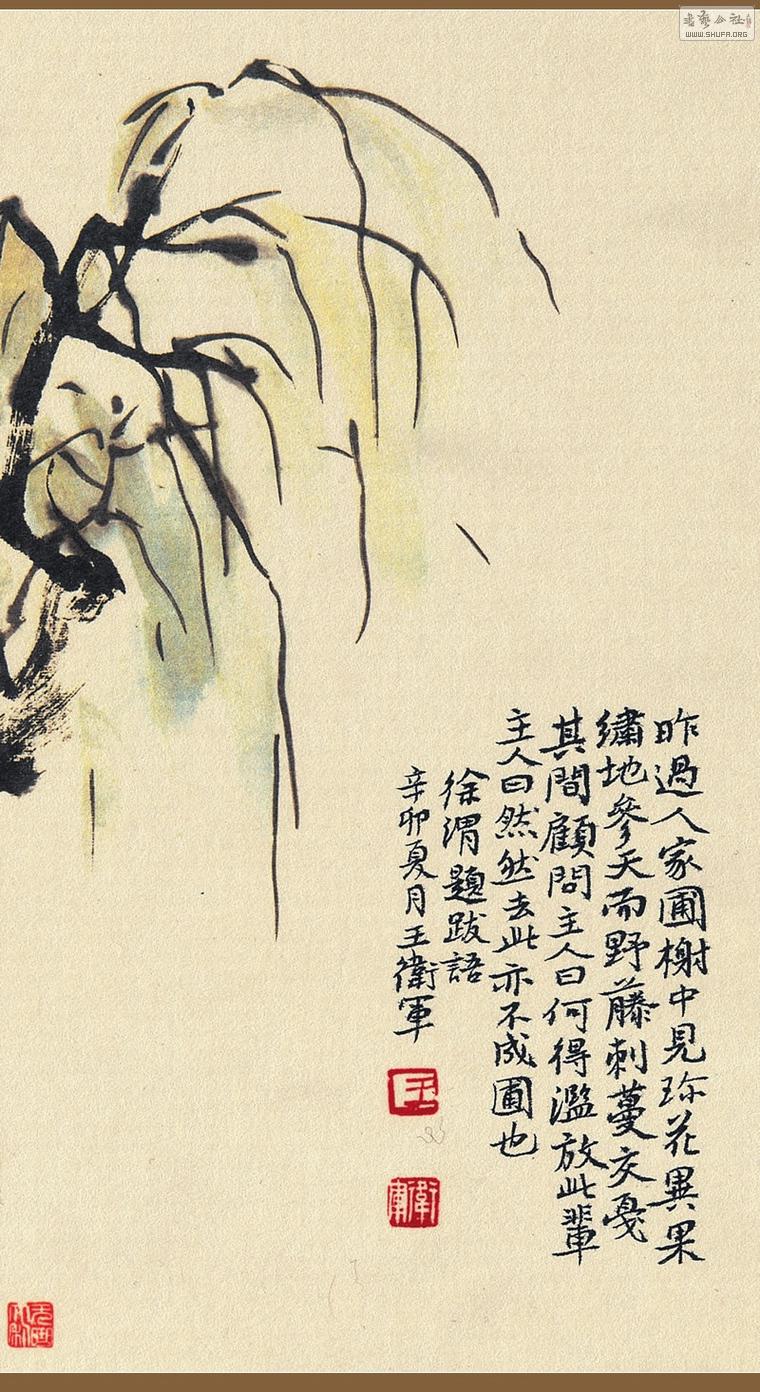 昨過人家圃榭中見珎花異果
繡地參天而野藤刺蔓交戞
其間顧問主人曰何得濫放此輩
主人曰然然去此亦不成圃也
徐渭題跋語
辛卯夏月王衛軍
王
衛軍
WWW.SHUFA.ORG